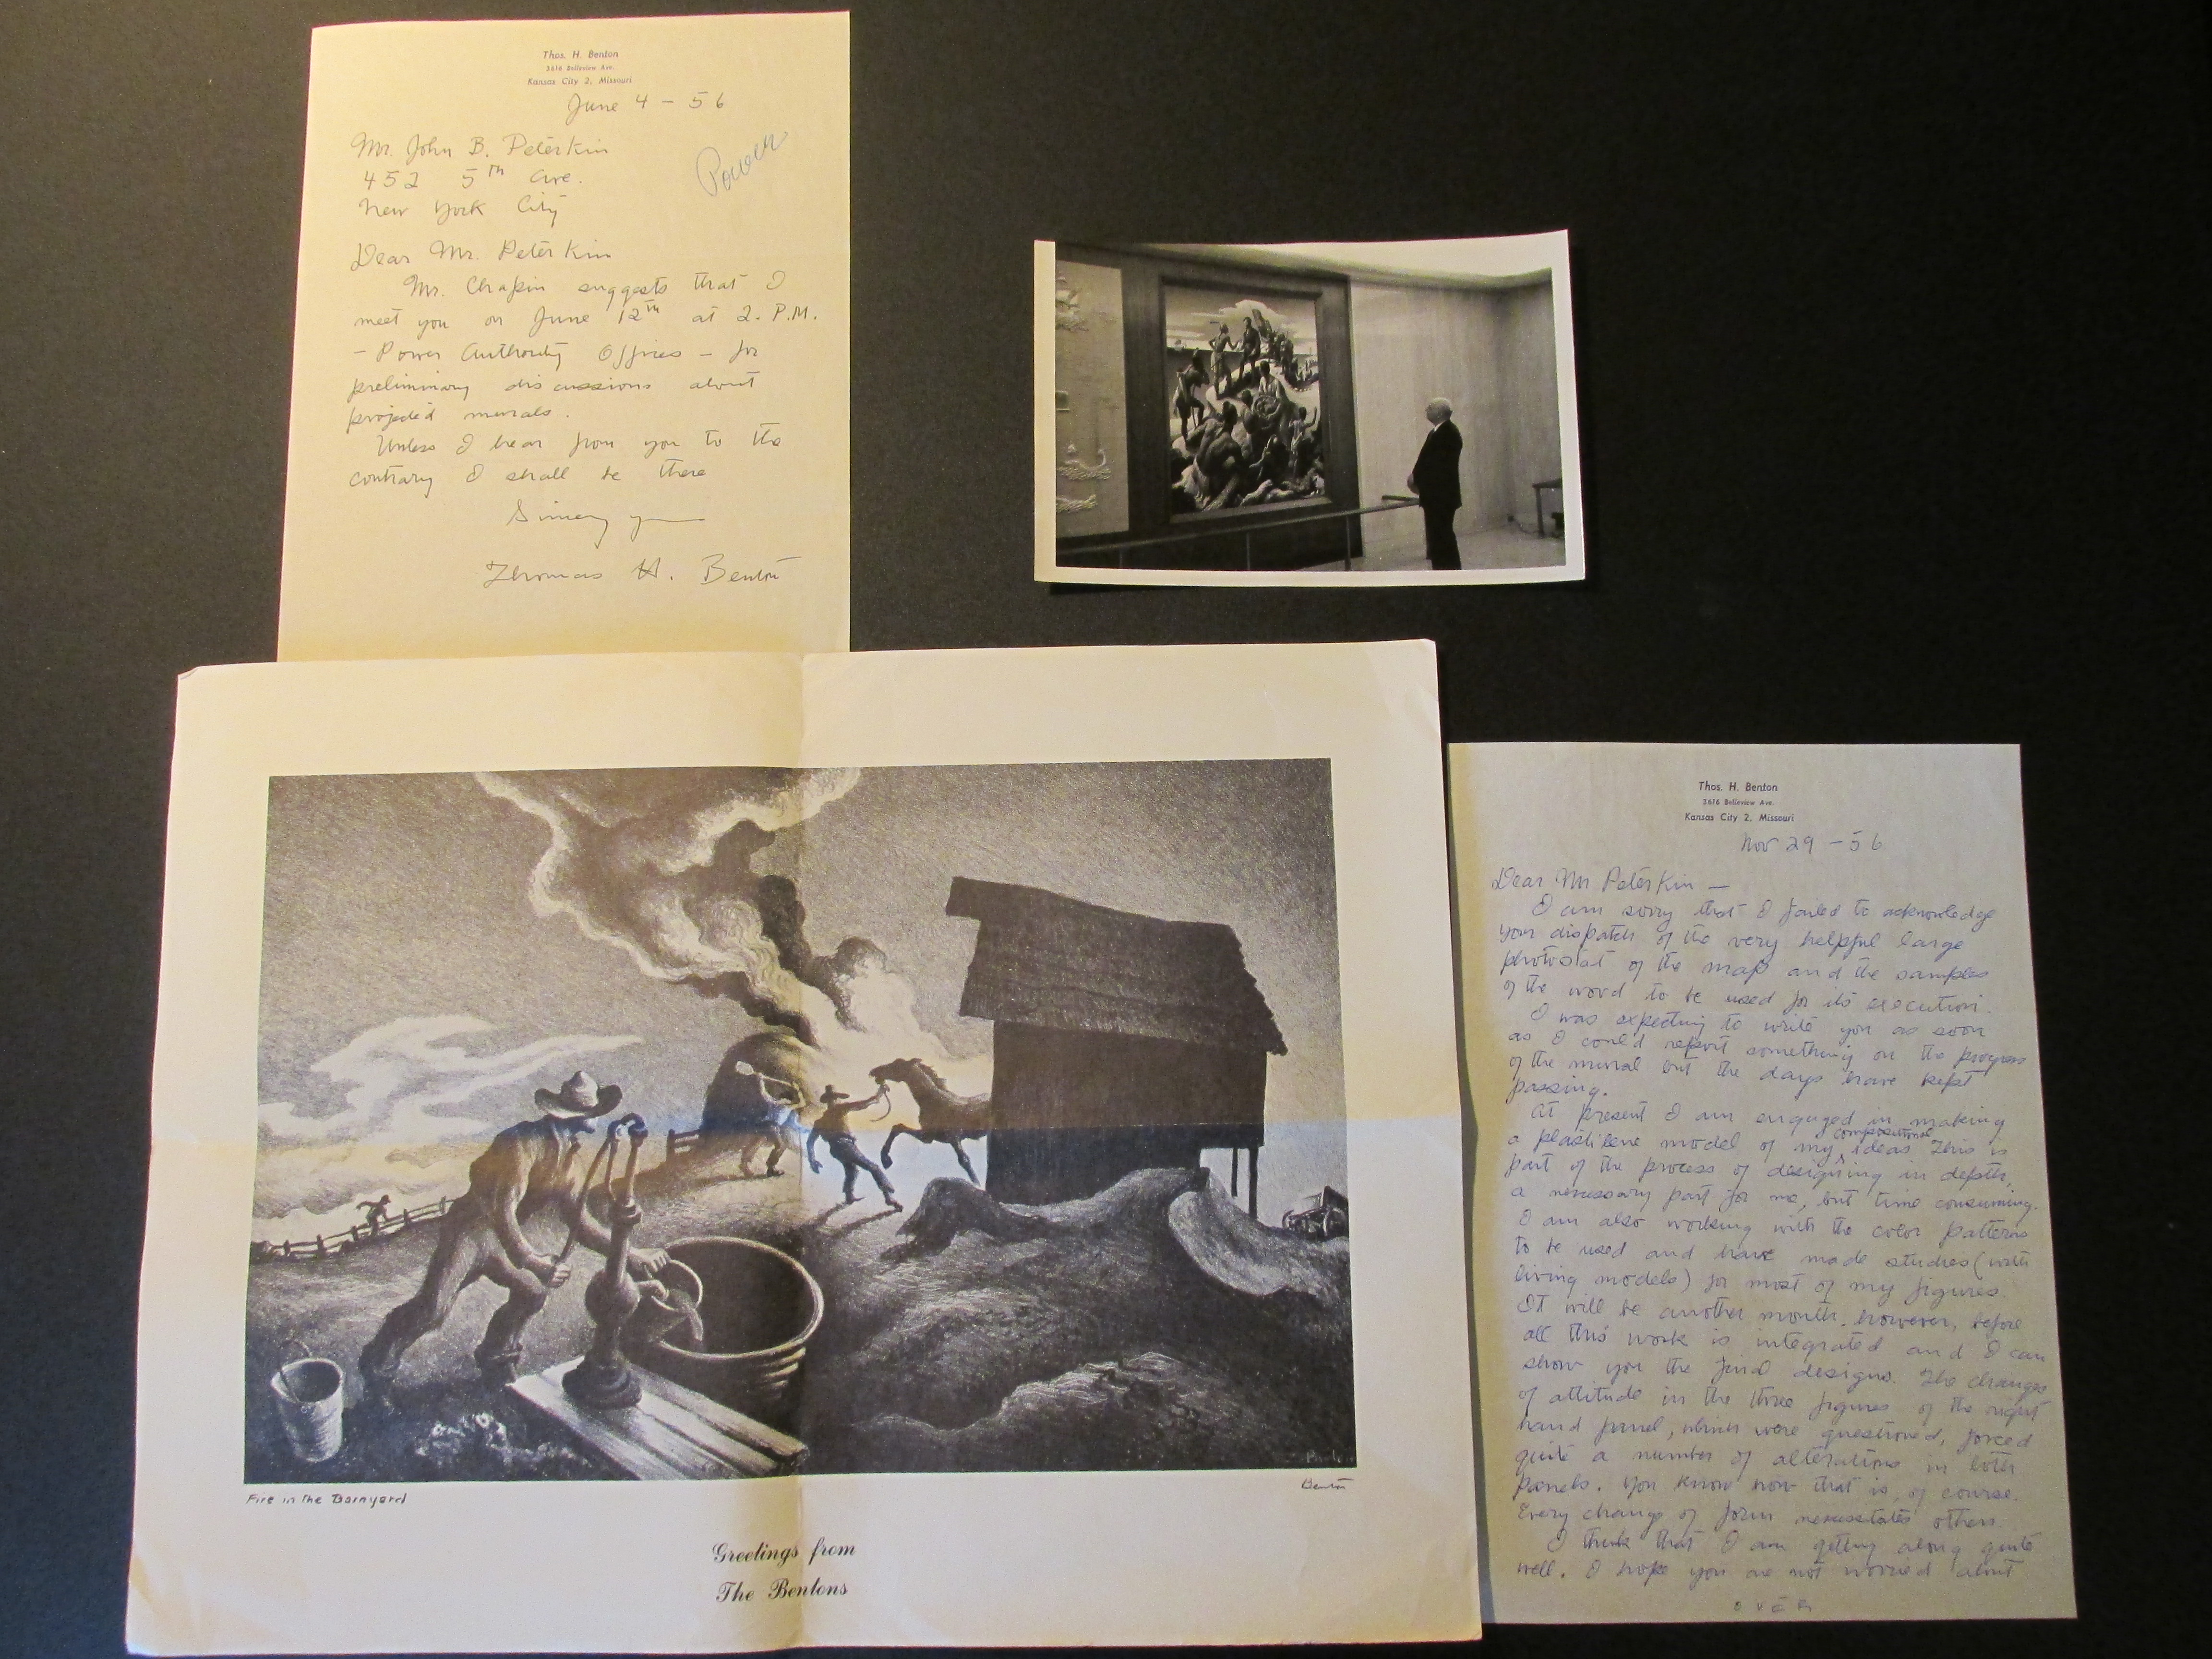 Thos. H. Benton
3616 Belleview Ave.
Kansas City 2, Missouri
June 4 - 56
Mr. John B. Peterkin
452 5th Ave.
New York City
Power
Dear Mr. Peterkin
Mr. Chapin suggests that I
meet you on June 12th at 2. P.M.
- Power Authority Offices - for
preliminary discussions about
projected murals.
Unless I hear from you to the
contrary I shall be there
Thomas H. Benton
Benton
Fire in the Barnyard
Benton
Greetings from
The Bentons
Thos. H. Benton
3616 Belleview Ave.
Kansas City 2, Missouri
Nov 29 - 56
Dear Mr Peterkin -
I am sorry that I failed to acknowledge
your dispatch of the very helpful large
photostat of the map and the samples
of the wood to be used for its execution.
I was expecting to write you as soon
as I could report something on the progress
of the mural but the days have kept
passing.
At present I am engaged in making
a plastilene model of my compositional ideas. This is
part of the process of designing in depth,
a necessary part for me, but time consuming.
I am also working with the color patterns
to be used and have made studies (with
living models) for most of my figures.
It will be another month, however, before
all this work is integrated and I can
show you the final designs. The changes
of attitude in the three figures of the right
hand panel, which were questioned, forced
quite a number of alterations in both
panels. You know how that is, of course.
Every change of form necessitates others
I think that I am getting along quite
well. I hope you are not worried about
OVER